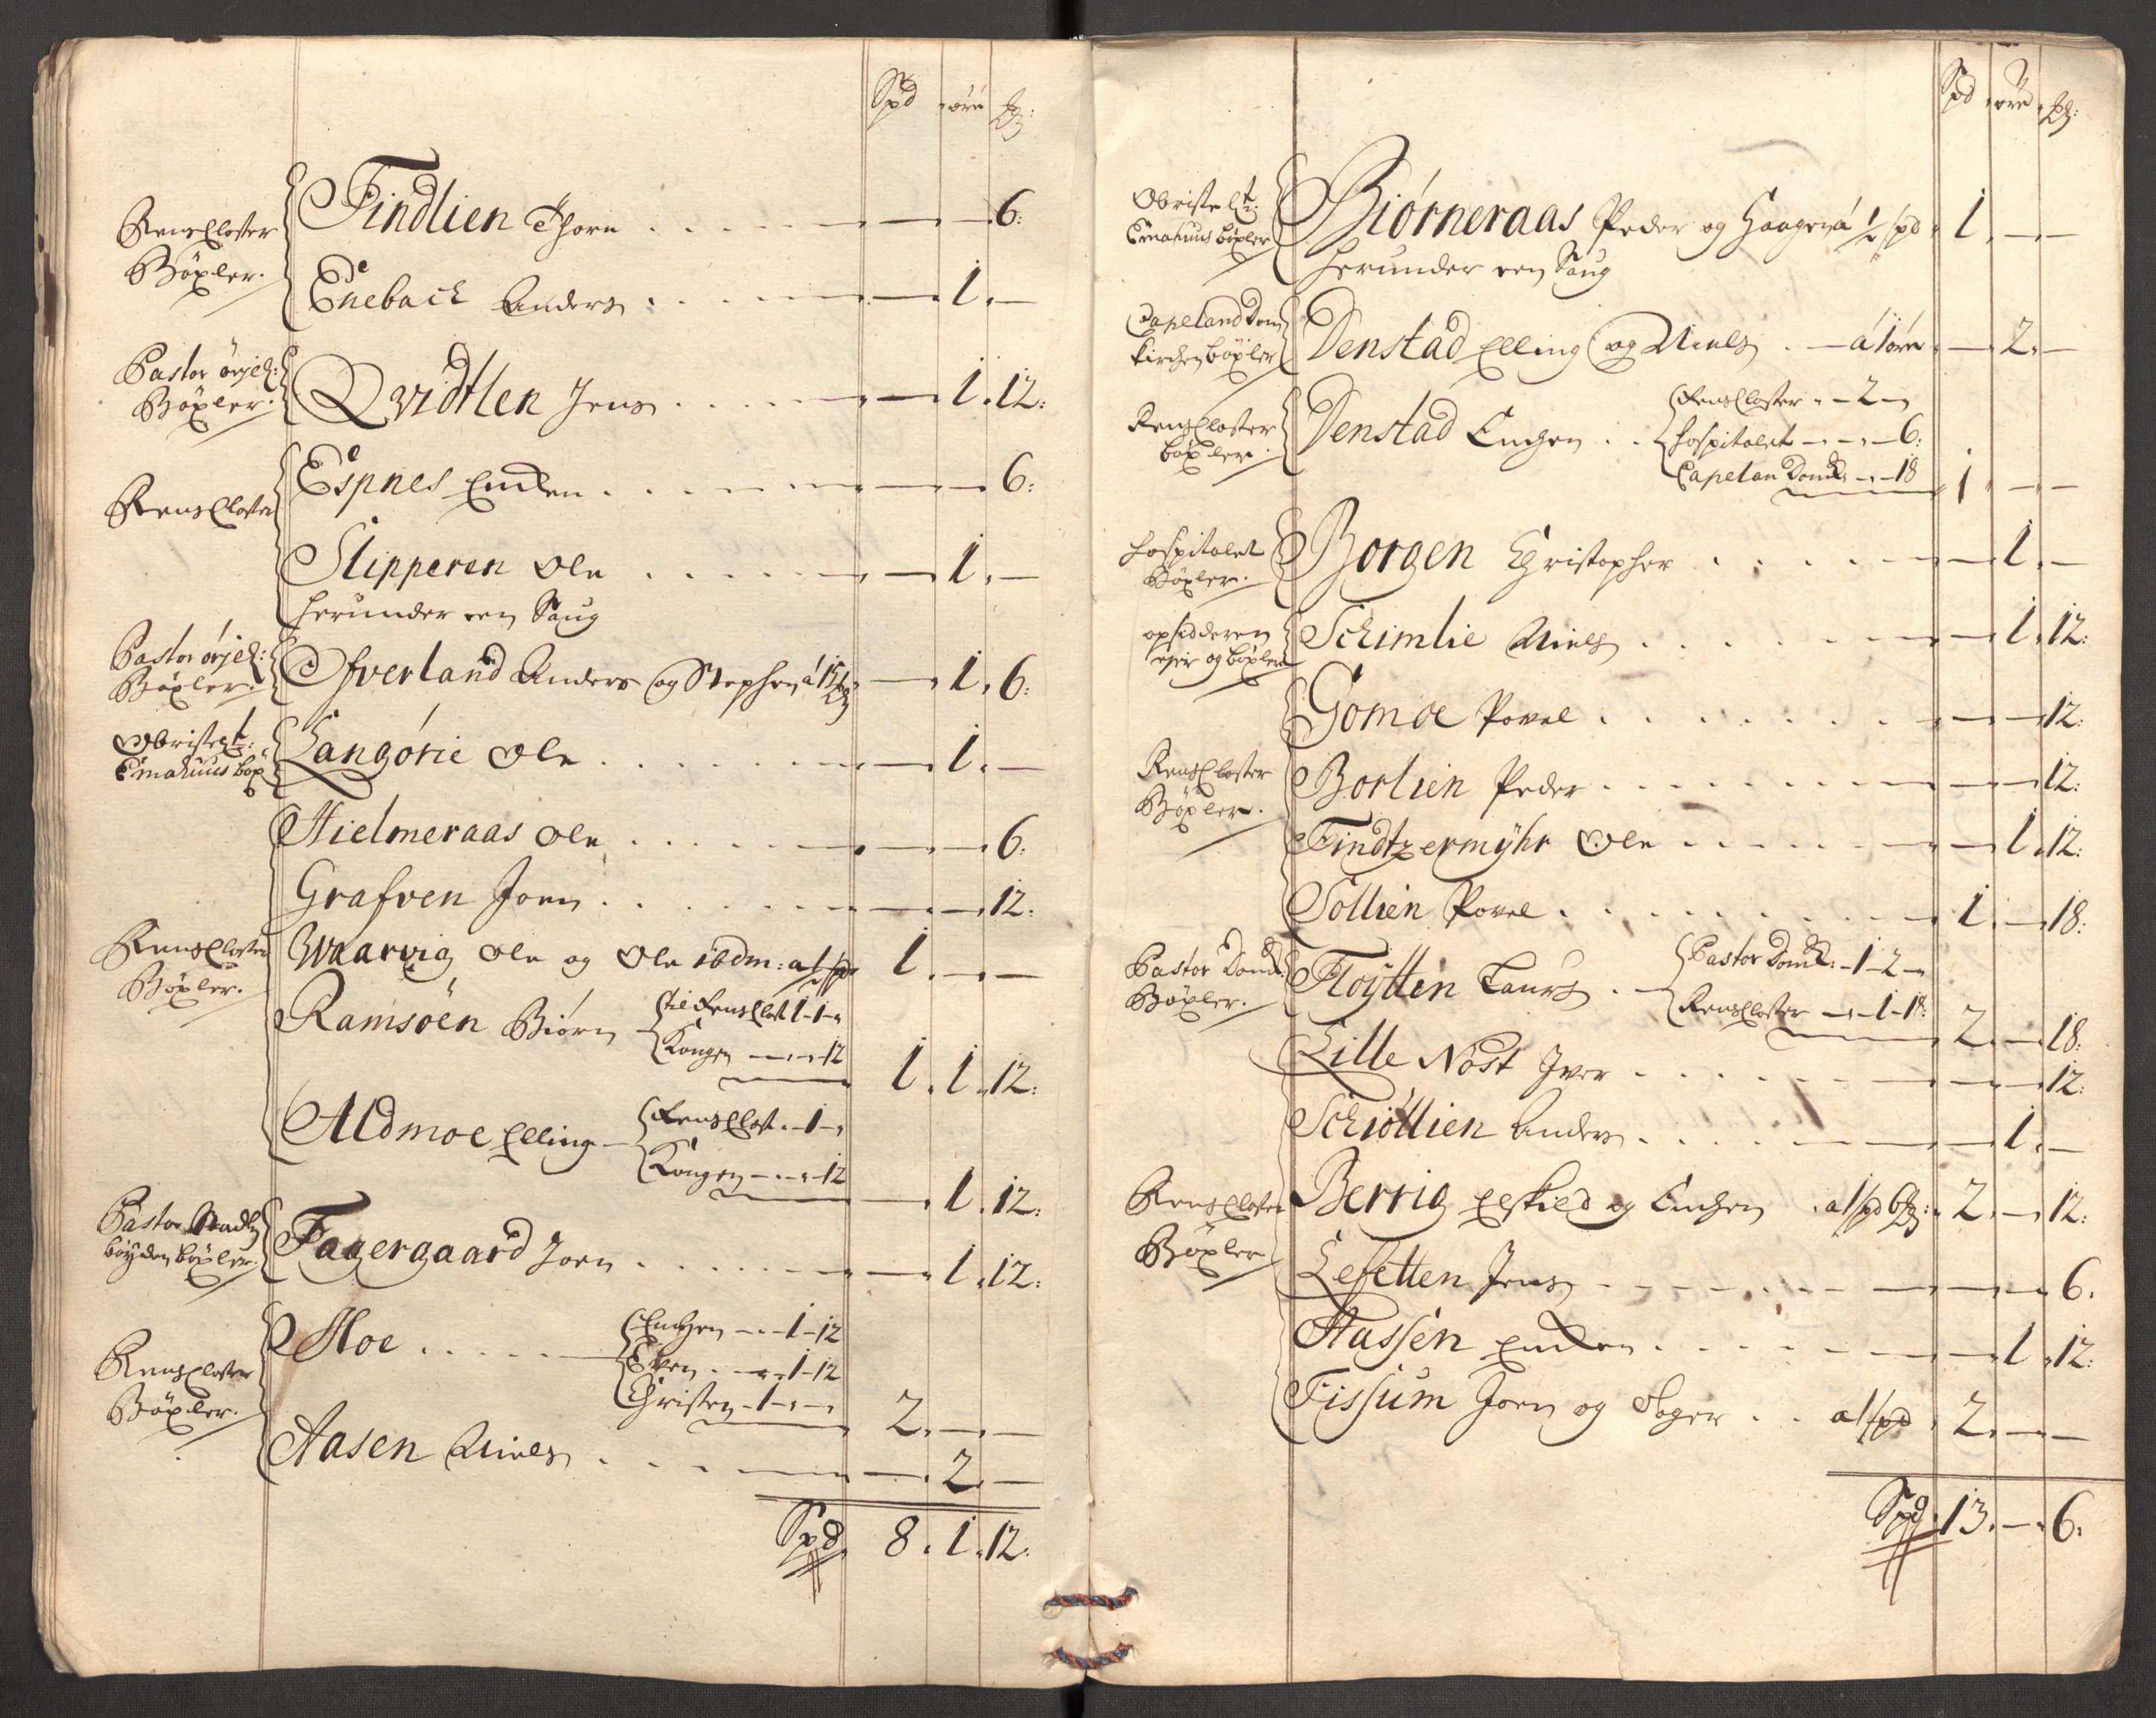 Spd øre
Rens Closter
Böxler.
Findlien Thore . . . . . — — 6:
Eneback Anders . . . . — 1. —
Pastor ørje
Böxler.
Qvidtlen Jens . . . . . — 1. 12:
Rens Closter
Espnes . . . . . — — 6:
Slipperen Ole . . . . . — 1. —
herunder een Saug
Pastor ørje
Böxler.
Ofverland Anders og Stephen á 15 — 1. 6:
Obriste Lt:
Emahuus böx
Langörie Ole . . . . . — 1. —
Hielmeraas Ole . . . . . — — 6.
Grafven Joen . . . . . — — 12:
Rens Closter
Böxler.
Waarvig Ole og Ole ibdm: a ½ spd 1. — —
Ramsöen Biörn
til Rens Clost 1-1-
Kongen — 12
1. 1. 12:
Aldmoe Elling —
Rens Clost. — 1 —
Kongen — 12
— 1. 12:
Pastor Stads
böyden böxler.
Fagergaard Joen . . . . . — 1. 12:
Rens Closter
Böxler.
Hoe . . . . .
— 1-12
Even . — 1-12
Christen — 1 —
2. — —
Aasen Niels . . . . — 2. —
Spd. 8. 1. 12:
Spd øre
Obriste Lt:
Emahuus böxler
Biörneraas Peder og Haagen á ½ spd 1. — —
herunder een Saug
Capeland Dom
kirchen böxler
Venstad Elling og Niels . — á 1 øre — 2. —
Rens Closter
böxler.
Venstad . .
Rens Closter — 2 —
Hospitalet — — 6:
Capelan Domk: — 18
1 — —
Hospitalet
Böxler.
Borgen Christopher . . . . . — 1. —
opsidderen
ejer og böxler
Schimlie Niels . . . . . — 1. 12:
Gomoe Povel . . . . . — — 12:
Rens Closter
Böxler.
Borlien Peder . . . . . — — 12:
Findtzermyhr Ole . . . . . — 1. 12:
Sollien Povel . . . . . 1. — 18:
Pastor Domk:
Böxler.
Floytten Laurs . —
Pastor Domk: — 1 - 2 —
Rens Closter — 1-18:
2. — 18:
Lille Nöst Iver . . . . . — — 12:
Schiöllien Anders . . . . . — 1. —
Rens Closter
Böxler
Berrig Eskild og . a 1 spd 6 2. — 12:
Lefetten Jens . . . . . — — 6.
Hassen . . . . . — 1. 12:
Fissum Joen og . . a 1 spd 2. — —
Spd. 13. — 6.